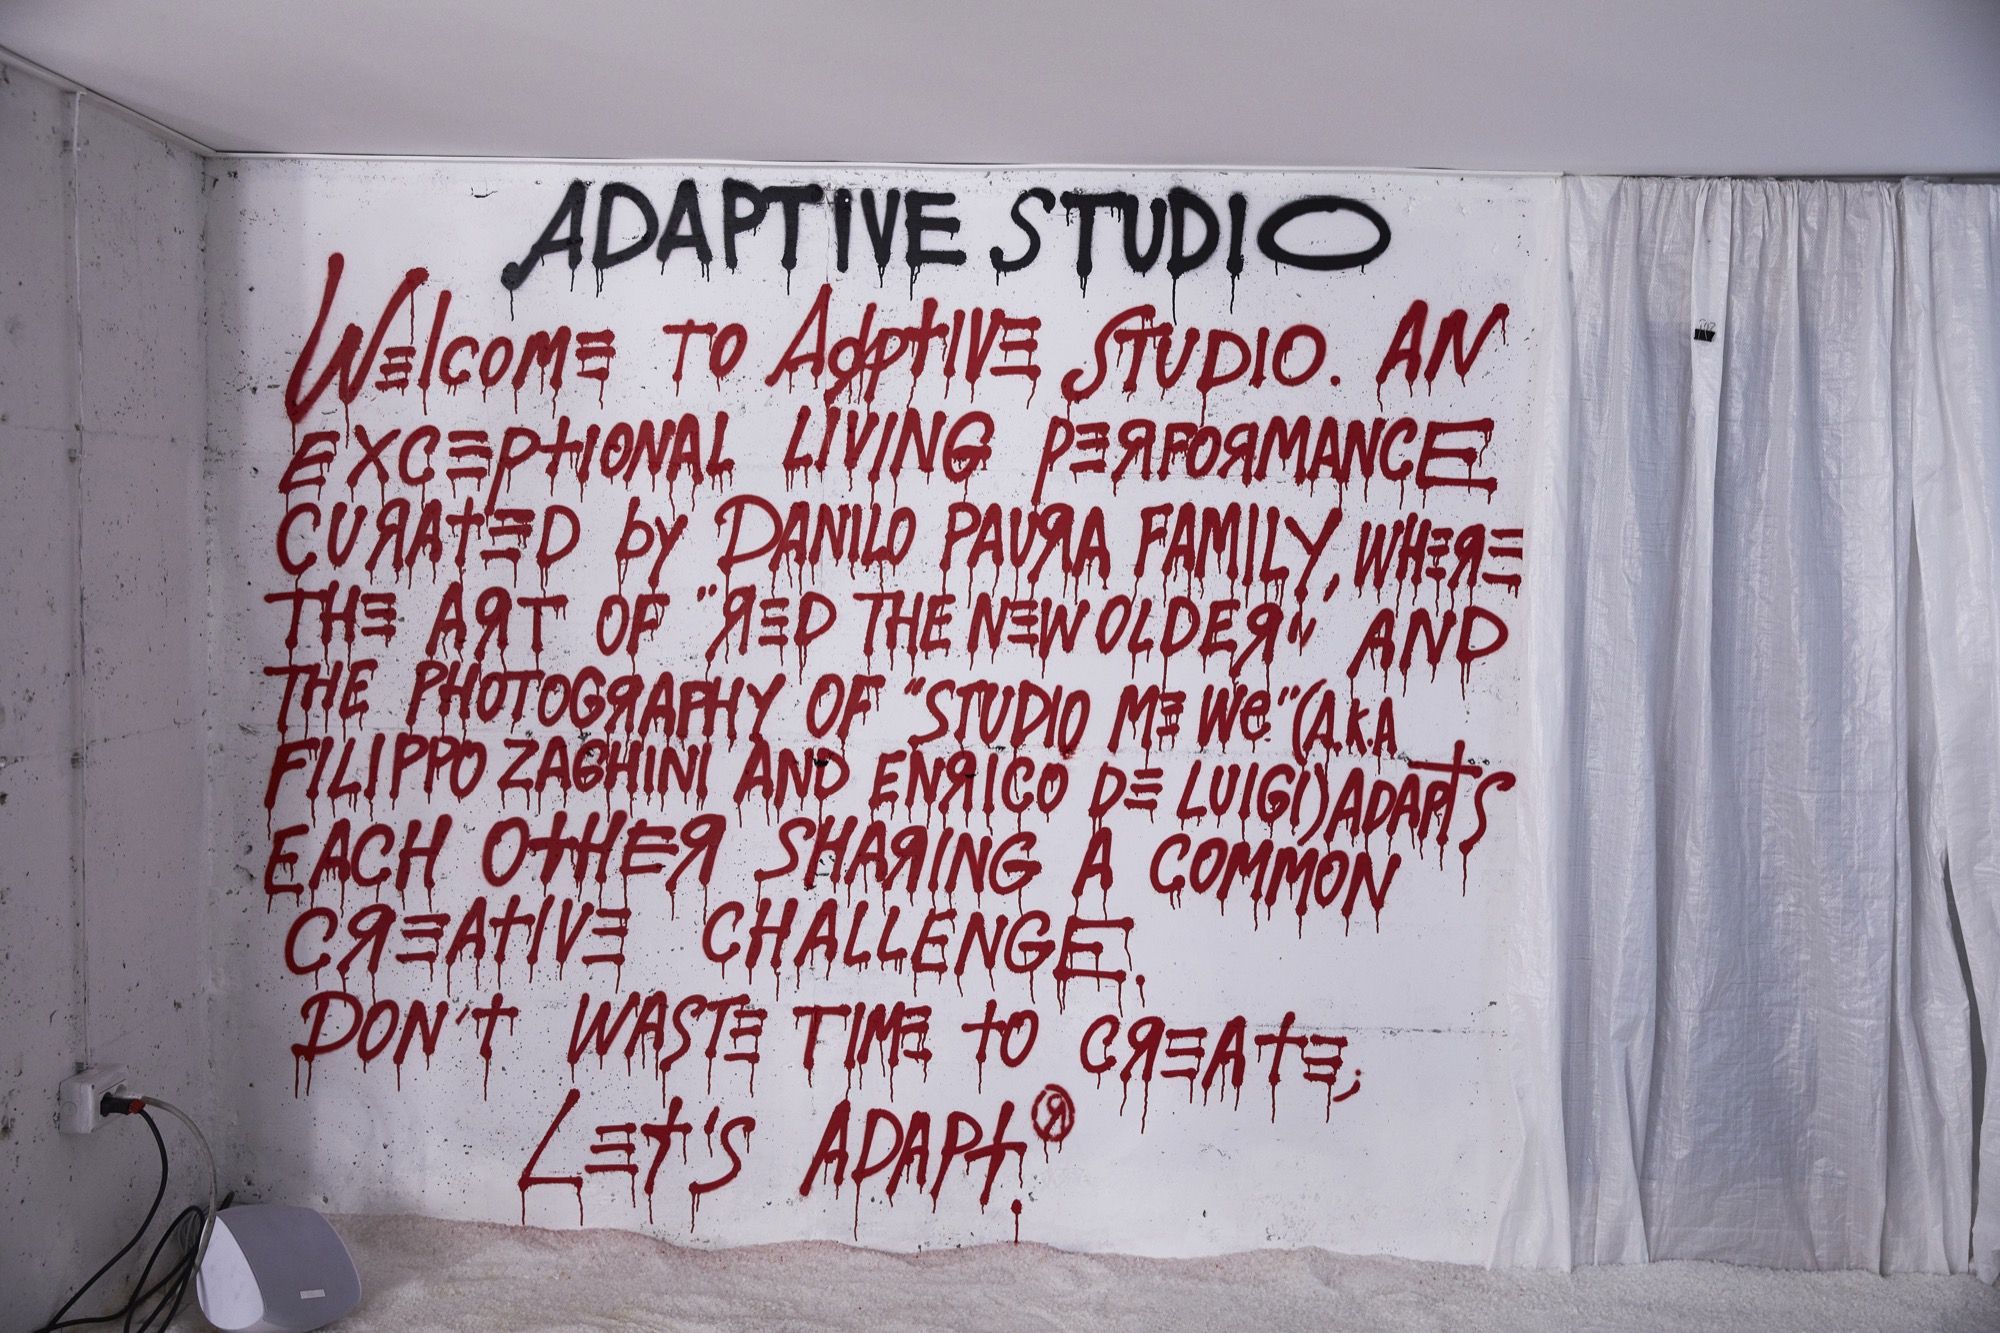 ADAPTIVE STUDIO
Welcome TO AdaptIVE STUDIO. AN
EXCEptIONAL LIVING PERFORMANCE
CURAtED by DANILO PAURA FAMILY, WHERE
THE ART OF "RED THE NEW OLDER" AND
THE PHOTOGRAPHY OF "STUDIO ME We" (A.K.A
FILIPPO ZAGHINI AND ENRICO DE LUIGI) ADAPtS
EACH OtHER SHARING A COMMON
CREAtIVE CHALLENGE.
DON't WASTE TIME tO CREAtE,
LEt'S ADAPt.®